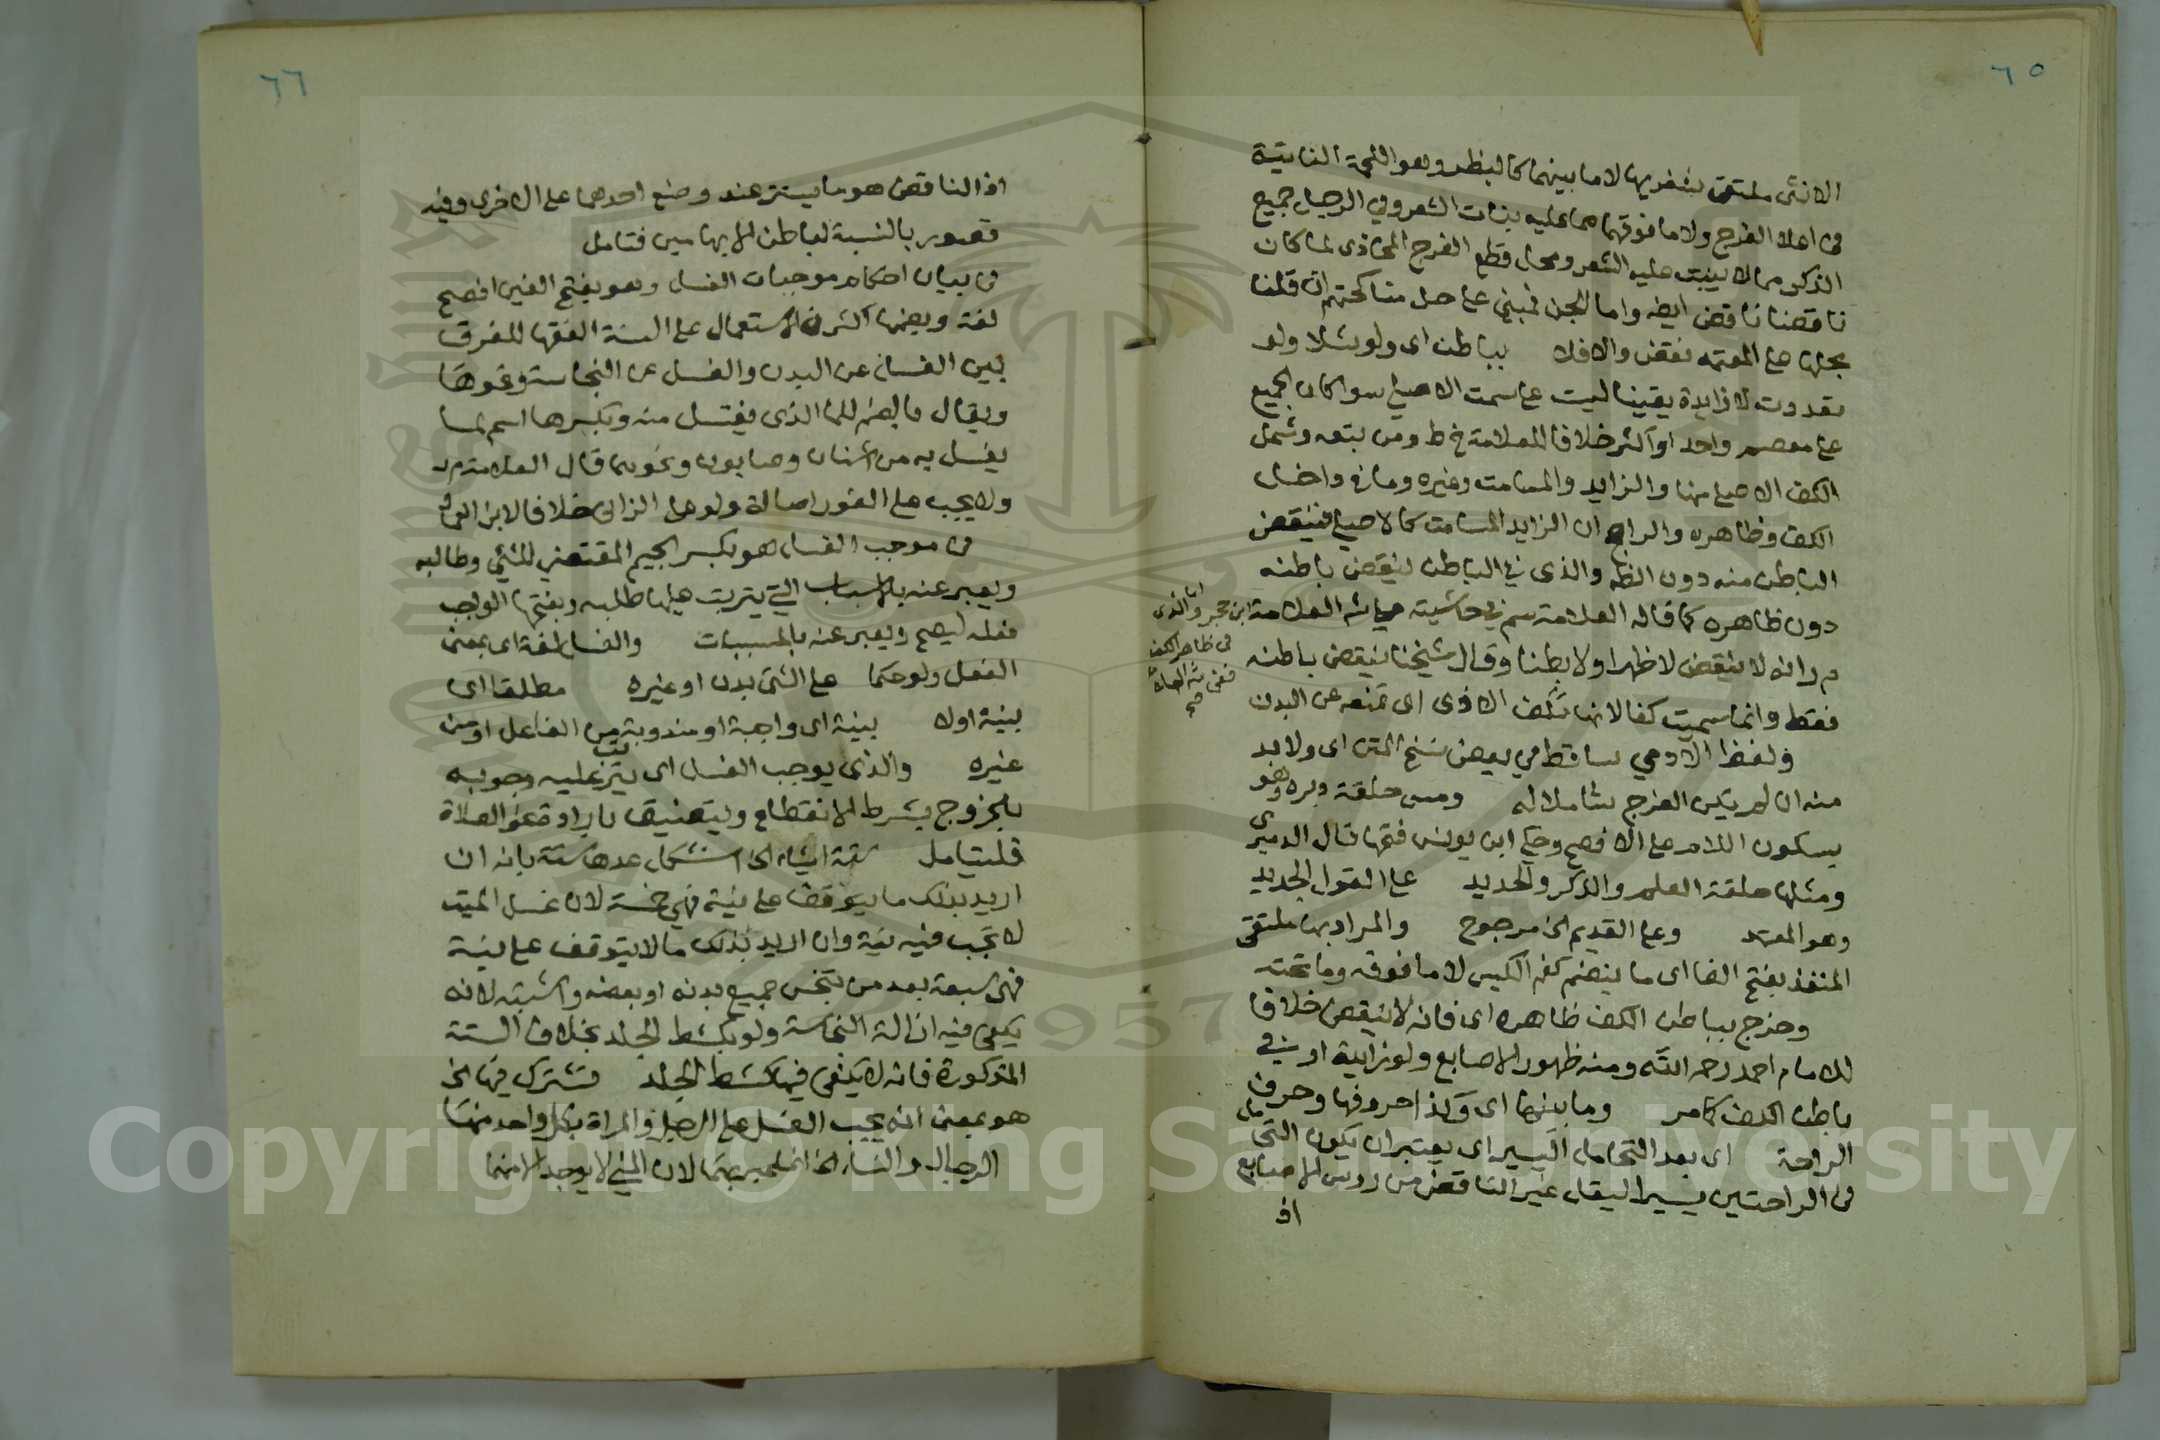 ٦٥
الانثى ملتقى شفريها لا ما بينهما كالبظر وهو اللحمة الناتية
في اعلا الفرج ولا ما فوقهما مما عليه بنات الشعر وفي الرجل جميع
الذكر مما لا ينبت عليه الشعر ومحل قطع الفرج المحاذي لما كان
ناقضا ناقض ايضا واما الجن فمبني على حل مناكحتهم ان قلنا
بحلها على المعتمد نقض والا فلا بباطن اى ولو شلا ولو
تعددت لا زايدة يقينا ليست على سمت الاصلي سوا كان الجميع
على معصم واحد او اكثر خلافا للعلامة خ ط ومن تبعه وشمل
الكف الاصلي منها والزايد والمسامت وغيره وما في داخل
الكف وظاهره والراجح ان الزايد المسامت كالاصلي فينقض
الباطن منه دون الظهر والذى في الباطن ينقض باطنه
دون ظاهره كما قاله العلامة سم في حاشيته العلامة ابن حجر واما الذى
في ظاهر الكف
م ر انه لا ينقض لا ظهرا ولا بطنا وقال شيخنا ينقض باطنه
فقط وانما سميت كفا لانها تكف الاذى اى تمنعه عن البدن
ولفظ الآدمي ساقط في بعض نسخ المتن اى ولا بد
منه ان لم يكن الفرج شاملا له ومس حلقة دبره وهو
بسكون اللام على الافصح وحكى ابن يونس فتحها قال الدميرى
ومثلها حلقة العلم والذكر والحديد على القول الجديد
وهو المعتمد وعلى القديم الخ مرجوح والمراد بها ملتقى
المنفذ بفتح الفا اى ما ينضم كفم الكيس لا ما فوقه وما تحته
وخرج بباطن الكف ظاهره اى فانه لا ينقض خلافا
للامام احمد رحمه الله ومنه ظهور الاصابع ولو زايدة او في
باطن الكف كما مر وما بينها اى وكذا حروفها وحرف
الراحة اى بعد التحامل اليسير اى يعتبر ان يكون التحامل
في الراحتين يسيرا ليقل غير الناقض من روس الاصابع
اذ
٦٦
اذ الناقض هو ما يستتر عند وضع احدهما على الاخرى وفيه
قصور بالنسبة لباطن الابهامين فتامل
في بيان احكام موجبات الغسل وهو بفتح الغين افصح
لغة وبضمها اكثر في الاستعمال على السنة الفقها للفرق
بين الغسل عن البدن والغسل عن النجاسة ونحوها
ويقال بالضم للما الذى يغتسل منه وبكسرها اسم لما
يغسل به من اشنان وصابون ونحوهما قال العلامة م ر
ولا يجب على الفور اصالة ولو على الزاني خلافا لابن العماد
في موجب الغسل هو بكسر الجيم المقتضي للشي وطالبه
ويعبر عنه بالاسباب التي يترتب عليها طلبه وبفتحها الواجب
فعله ليصح ويعبر عنه بالمسببات والغسل لغة اى بمعنى
الفعل ولو حكما على الشي بدن او غيره مطلقا اى
بنية اولا بنية اى واجبة او مندوبة من الفاعل او من
غيره والذى يوجب الغسل اى يترتب عليه وجوبه
بالخروج بشرط الانقطاع ويتضيق بارادة نحو الصلاة
فليتامل ستة اشياء الخ استشكل عدها ستة بانه ان
اريد بذلك ما يتوقف على نية فهي خمسة لان غسل الميت
لا تجب فيه نية وان اريد بذلك ما لا يتوقف على نية
فهي سبعة بعد من تنجس جميع بدنه او بعضه واشتبه لانه
يكفي فيه ازالة النجاسة ولو بكشط الجلد بخلاف الستة
المذكورة فانه لا يكفي فيها كشط الجلد تشترك فيها الخ
هو بمعنى انه يجب الغسل على الرجل والمراة بكل واحد منها
الرجال والنساء الخ لان المني لا يوجد الا منهما
Copyright © King Saud University
1957